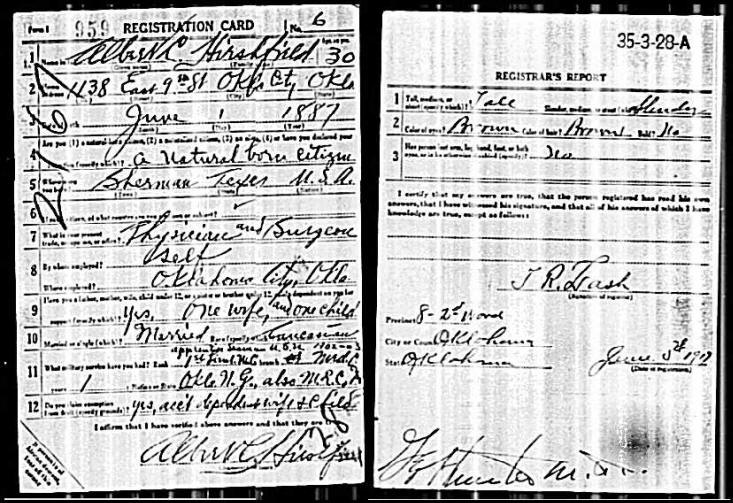 Form 1 959 REGISTRATION CARD No. 6
1 Name in full Albert C Hirshfield 30
2 1138 East 9th St Okla City, Okla
3 June 1 1887
4 Are you (1) a natural-born citizen, (2) a naturalized citizen, (3) an alien, (4) or have you declared your
a natural born citizen
5 Sherman Texas U.S.A.
6
7 What is your present trade, occupation, or office? Physician and Surgeon
8 By whom employed? Self
Where employed? Oklahoma City, Okla
9 Have you a father, mother, wife, child under 12, or a sister or brother under 12, solely dependent on you for
support (specify which)? Yes, One wife, and one child
10 Married or single (which)? Married Race (specify which)? Caucasian
apprentice Seaman U.S.N. 1902-03
11 What military service have you had? Rank 1st Lieut. M.C. branch Med. C.
years 1 Nation or State Okla N.G., also M.R.C.
12 Do you claim exemption from draft (specify grounds)? Yes, acc't dependent wife & child
I affirm that I have verified above answers and that they are true
Albert C Hirshfield
35-3-28-A
REGISTRAR'S REPORT
1 Tall, medium, or short (specify which)? Tall Slender, medium, or stout (which)? Slender
2 Color of eyes? Brown Color of hair? Brown Bald? No
3 Has person lost arm, leg, hand, foot, or both
eyes, or is he otherwise disabled (specify)? No
I certify that my answers are true, that the person registered has read his own
answers, that I have witnessed his signature, and that all of his answers of which I have
knowledge are true, except as follows:
(Signature of registrar)
Precinct 8-2d Ward
City or County Oklahoma
State Oklahoma June 5th 1917
(Date of registration)